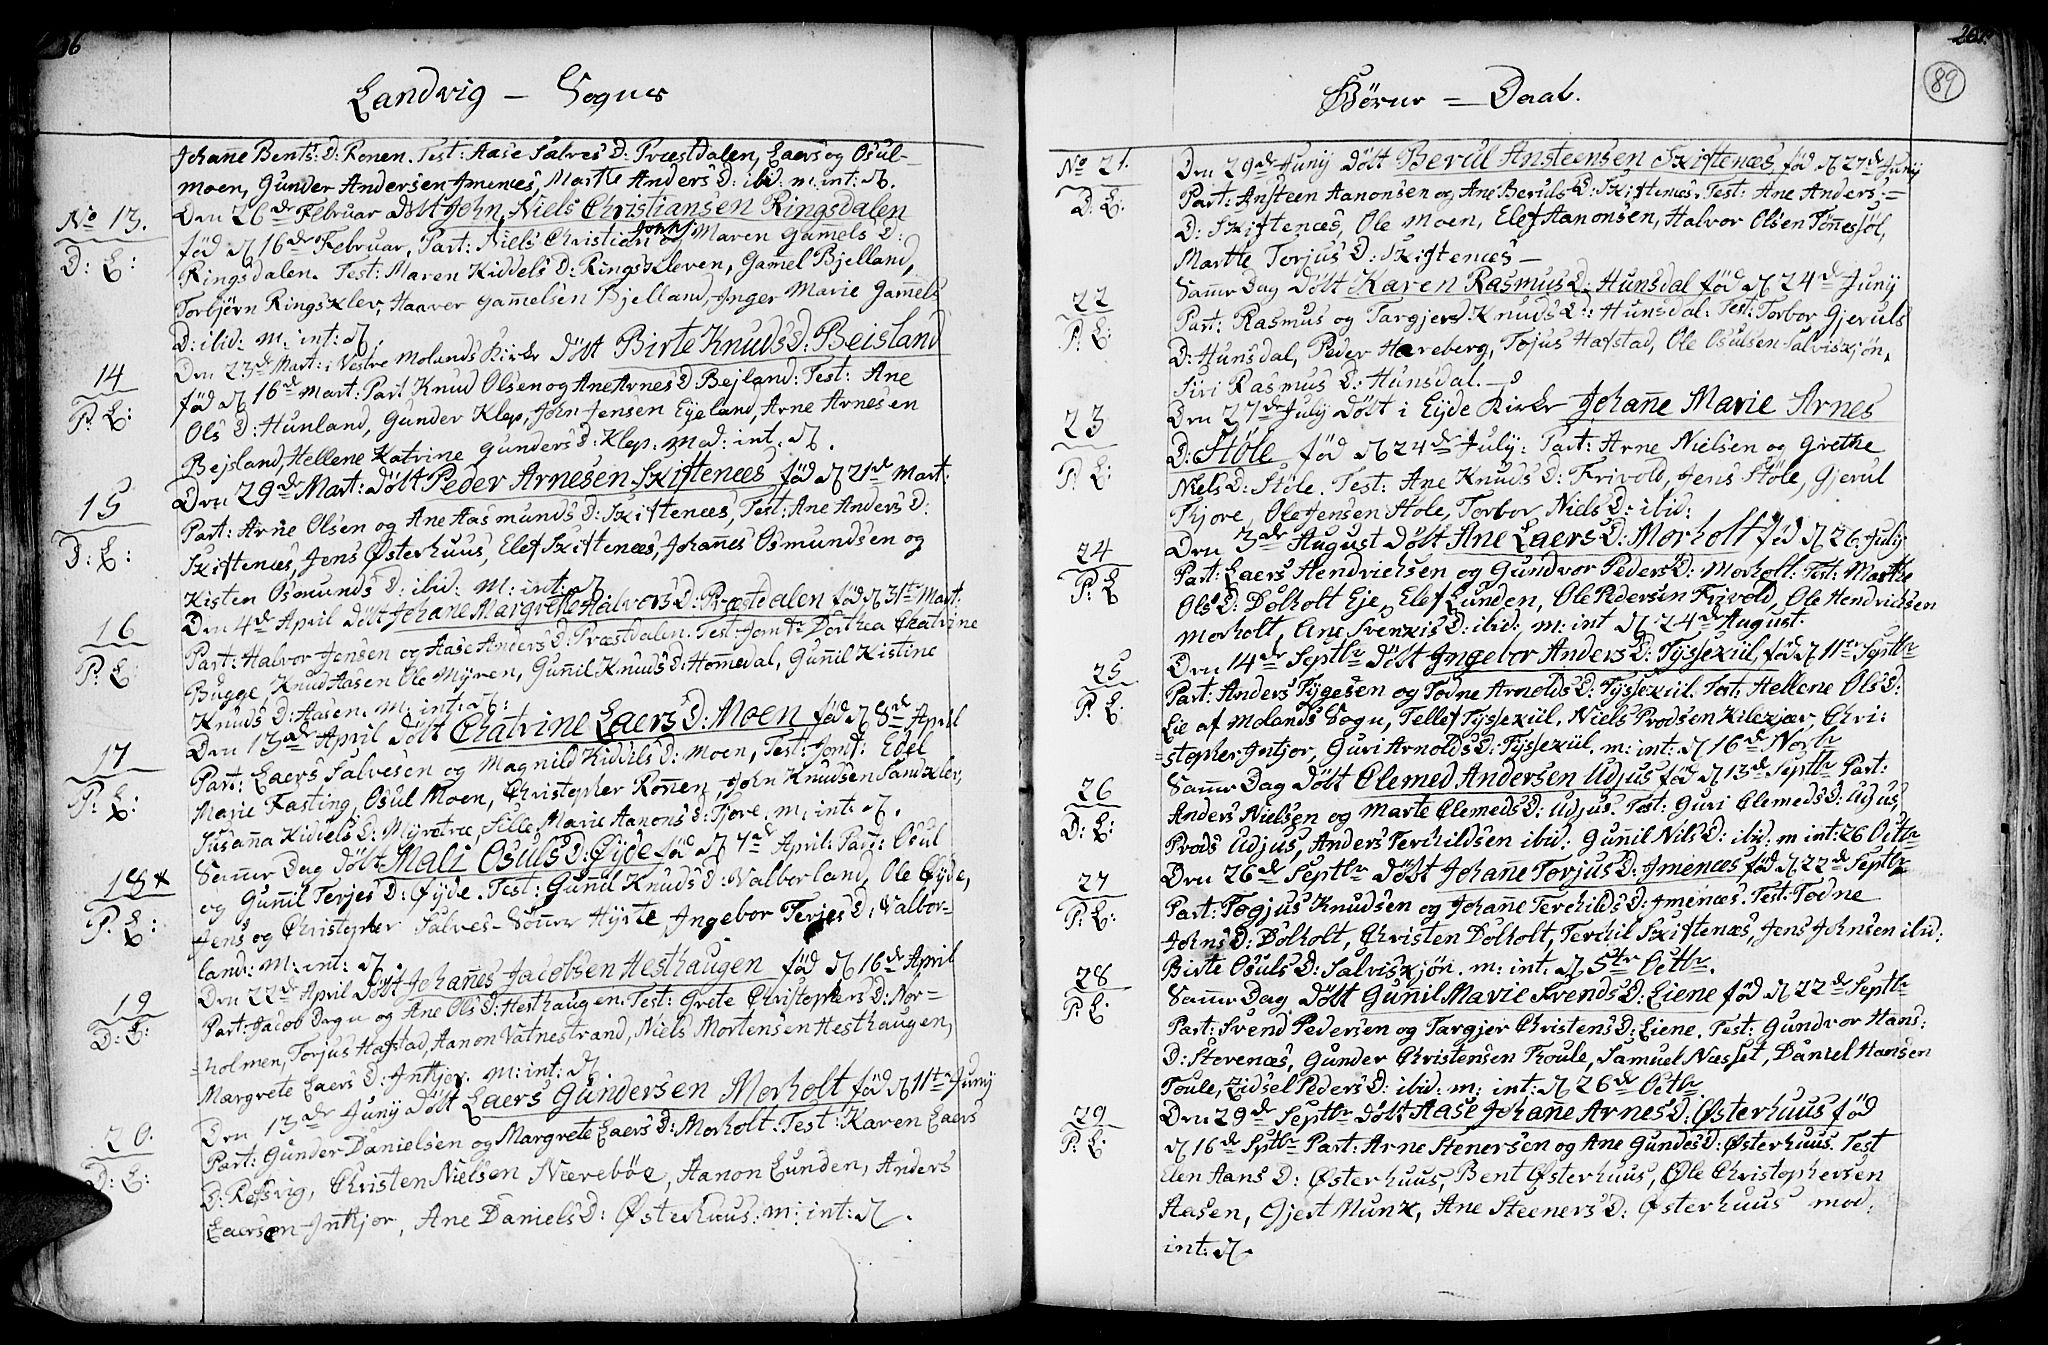 Landvig – Sogns
Johañe Bents: D: Ronen. Test: Aase Salves D: Præstdalen, Laers og Osul-
moen, Gunder Andersen Jmenes, Marthe Anders D: ibid: m: int:
No 13.
D: L:
Den 26de Februar døbt John Niels Christiansen Ringsdalen
fød 16de Februar, Part: Niels Christian John: og Maren Gamels D:
Ringsdalen. Test: Maren Kiddels D: Ringskleven, Gamel Bjelland,
Torbjørn Ringsklev, Haaver Gamelsen Bjelland, Inger Marie Gam̃els
D: ibid: m: int:
14
P: L:
Den 23de Mart: i Vestre Molands Kirke døbt Birte Knuds D: Beisland
fød 16de Mart: Part Knud Olsen og Ane Arnes D Bejland: Test: Ane
Ols D: Hunland, Gunder Klep, John Jensen Eyeland, Arne Arnesen
Bejsland, Hellene Katrine Gunders D: Klep. mod: int:
15
D: L:
Den 29de Mart: døbt Peder Arnesen Skiftenes fød 21de Mart:
Part: Arne Olsen og Ane Aasmunds D: Skiftenes, Test: Ane Anders D:
Skiftenes, Jens Østerhuus, Elef Skiftenes, Johañes Osmundsen og
Kisten Osmunds D: ibid: m: int:
16
P: L:
Den 4de April døbt Johañe Margrethe Halvors D: Præstdalen fød 31te Mart:
Part: Halvor Jensen og Aase Anders D: Præstdalen. Test Jomfr Dorthea Chatrine
Bugge, Knud Aasen Ole Myren, Gun̄il Knuds D: Hom̃edal, Gun̄il Kistine
Knuds D: Aasen. m: int:
17
P: L:
Den 13de April døbt Chatrine Laers D: Moen fød 8de April
Part: Laers Salvesen og Magnild Kiddels D: Moen, Test: Jomf: Edel
Marie Fasting, Osul Moen, Christopher Ronen, John Knudsen Sandklev,
Susanna Kiddels D: Myretræ, Sille Marie Aanons D: Fjore. m: int:
18
P: L:
Sam̃e Dag døbt Mali Osuls D: Øyde fød 7de April: Part: Osul
og Gun̄il Terjes D: Øyde. Test: Gun̄il Knuds D: Valborland, Ole Øyde,
Jens og Christopher Salves-Søñer Hyrte Ingebor Terjes D: Valbor-
land: m: int:
19
D: L:
Den 22de April døbt Johañes Jacobsen Hesthaugen fød 16de April
Part: Jacob Dagn og Ane Ols D: Hesthaugen. Test: Grete Christophers D: Nor=
=holmen, Torjus Hafstad, Aanon Vatnestrand, Niels Mortensen Hesthaugen,
Margrete Laers D: Intkjor. m: int:
20.
D: L:
Den 13de Junij døbt Laers Gundersen Morholt fød 11te Junij
Part: Gunder Danielsen og Margrete Laers D: Morholt. Test: Karen Laers
D: Refsvig, Christen Nielsen Nærebøe, Aanon Lunden, Anders
Laersen Intkjor, Ane Daniels D: Østerhuus: m: int:
Børne = Daab.
89
No 21.
D: L:
Den 29de Junij døbt Berul Ansteensen Skiftenes, fød 27de Junij
Part: Ansteen Aanonsen og Ane Beruls D: Skiftenes. Test: Ane Anders:=
D: Skiftenes, Ole Moen, Elef Aanonsen, Halvor Olsen Tønnesøl,
Marthe Torjus D: Skiftenes –
22
P: L:
Sam̃e Dag døbt Karen Rasmus D: Hunsdal fød 24de Junij
Part: Rasmus og Targjerd Knuds D: Hunsdal. Test: Torbor Gjeruls
D: Hunsdal, Peder Hareberg, Tojus Hafstad, Ole Osulsen Salviskjøn,
Siri Rasmus D: Hunsdal.
23
P: L:
Den 27de July døbt i Eyde Kirke Johañe Marie Arnes
D: Støle fød 24de July: Part: Arne Nielsen og Grethe
Niels D: Støle. Test: Ane Knuds D: Frivold, Jens Støle, Gjerul
Fjore, Ole Jensen Støle, Torbor Niels D: ibid:
24
P: L
Den 3de August døbt Ane Laers D: Morholt fød 26. July
Part: Laers Hendrichsen og Gundvor Peders D: Morholt: Test: Marthe
Ols D: Dolholt Eje, Elef Lunden, Ole Pedersen Frivold, Ole Hendrichsen
Morholt, Ane Svenkis D: ibid: m: int 24de August.
25
P: L:
Den 14de Septbr døbt Ingebor Anders D: Tyssekiil, fød 11te Septbr
Part: Anders Tygesen og Todne Arnolds D: Tyssekiil. Test: Hellene Ols D:
Lie af Molands Sogn, Tellef Tyssekiil, Niels Prodsen Kilekjær, Chri:
=stopher Intjor, Guri Arnolds D: Tyssekiil. m: int: 16de Novbr
26
D: L:
Sam̃e Dag døbt Clemed Andersen Udjus fød 13de Septbr Part:
Anders Nielsen og Marte Clemeds D: Udjus. Test: Guri Clemeds D: Udjus,
Prods Udjus, Anders Terchildsen ibid: Gun̄il Nils D: ibid: m int: 26 Octbr
27
P: L:
Den 26de Septbr døbt Johañe Torjus D: Jmenes fød 22de Septbr
Part: Togjus Knudsen og Johañe Terchilds D: Jmenes. Test: Todne
Johns D: Dolholt, Christen Dolholt, Terchil Skiftenes, Jens Johnsen ibid:
Birte Osuls D: Salviskjøn. m: int: 5te Octbr.
28
P: L:
Sam̃e Dag døbt Gun̄il Marie Svends D: Liene fød 22de Septbr
Part: Svend Pedersen og Targjer Christens D: Liene. Test: Gundvor Hans:
D: Storenes, Gunder Christensen Toule, Samuel Næsset, Daniel Hansen
Toule, Zidsel Peders D: ibid: m: int: 26de Octbr.
29
P: L:
Den 29de Septbr døbt Aase Johañe Arnes D: Østerhuus fød
16de Sptbr Part: Arne Stenersen og Ane Gundes D: Østerhuus. Test
Elen Hans D: Østerhuus, Bent Østerhuus, Ole Christophersen
Aasen, Gjert Munk, Ane Steeners D: Østerhuus mod:
int: